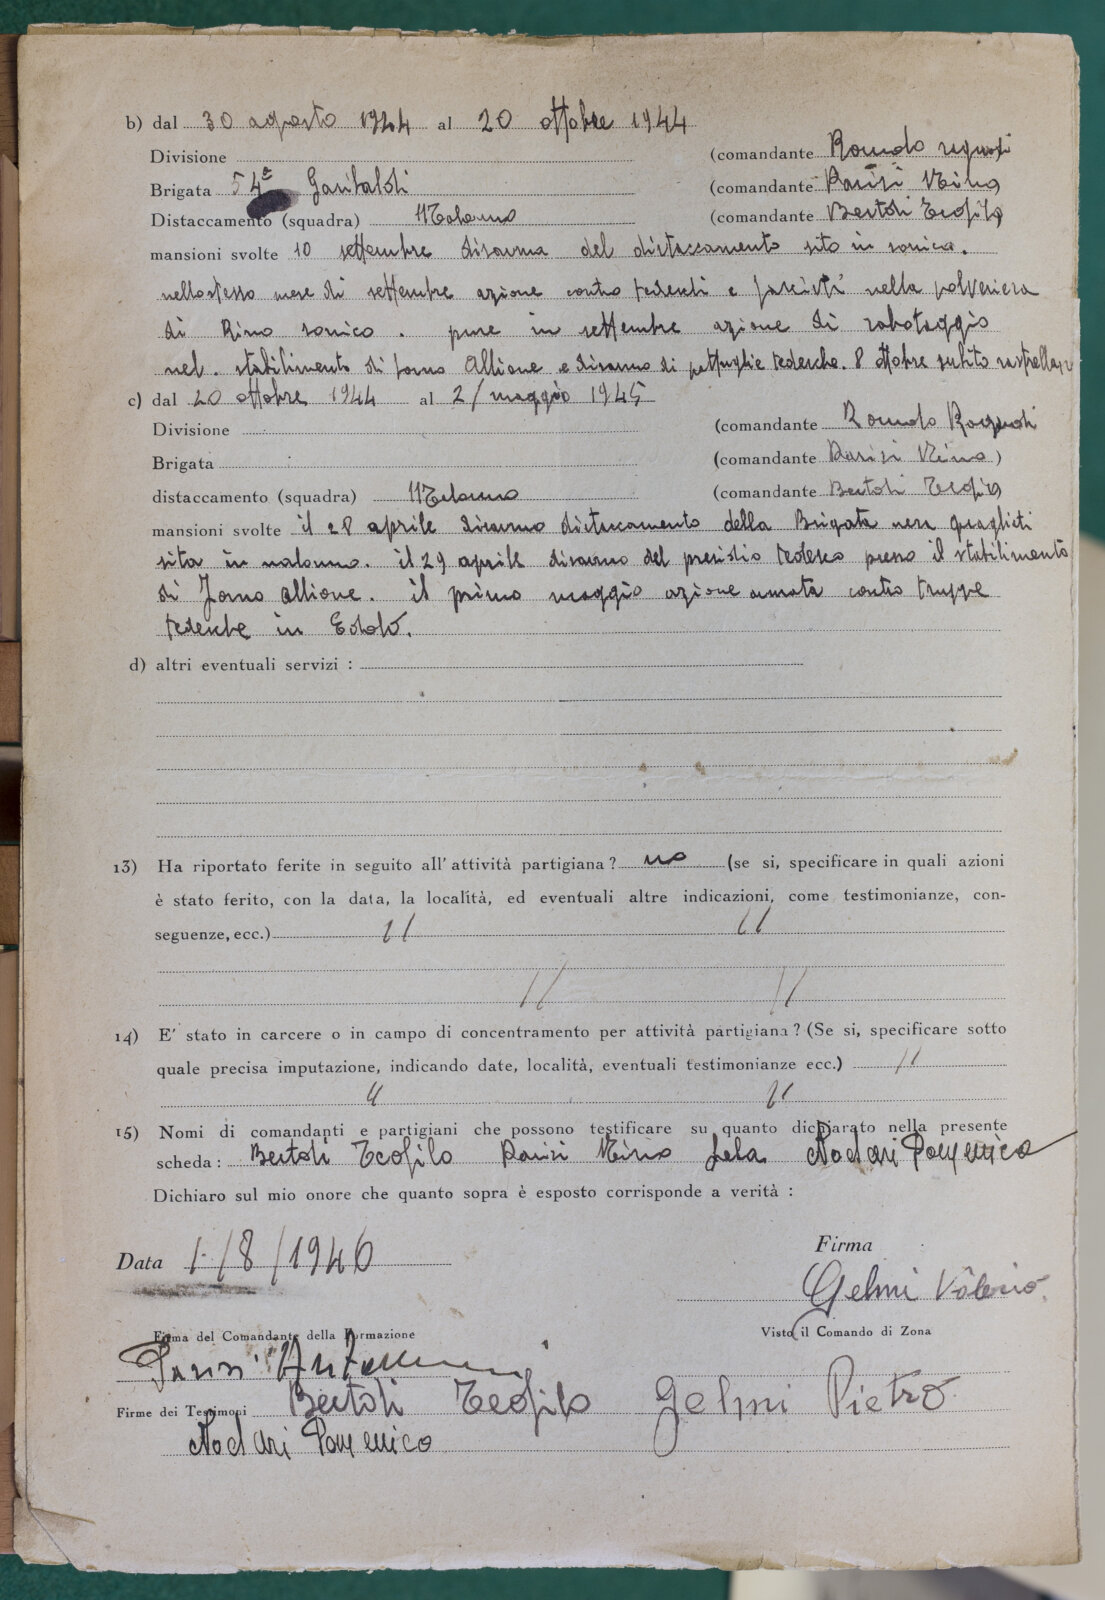 b) dal 30 agosto 1944 al 20 ottobre 1944
Divisione (comandante Romolo ragnoli
Brigata 54ª Garibaldi (comandante Parisi Nino
Distaccamento (squadra) Malonno (comandante Bertoli Teofilo)
mansioni svolte 10 settembre disarmo del distaccamento sito in sonico.
nello stesso mese di settembre azione contro tedeschi e fascisti nella polveriera
di Rino sonico. pure in settembre azione di sabotaggio
nel. stabilimento di forno Allione e disarmo di pattuglie tedesche. 8 ottobre subito
c) dal 20 ottobre 1944 al 2/ maggio 1945
Divisione (comandante Romolo Ragnoli
Brigata (comandante Parisi Nino)
distaccamento (squadra) Malonno (comandante Bertoli Teofilo
mansioni svolte il 28 aprile disarmo distaccamento della Brigata nera quagliati
sita in malonno. il 29 aprile disarmo del presidio tedesco presso il stabilimento
di Forno allione. il primo maggio azione armata contro truppe
tedesche in Edolo.
d) altri eventuali servizi :
13) Ha riportato ferite in seguito all' attività partigiana ? no (se si, specificare in quali azioni
è stato ferito, con la data, la località, ed eventuali altre indicazioni, come testimonianze, con-
seguenze, ecc.) // //
// //
14) E' stato in carcere o in campo di concentramento per attività partigiana ? (Se si, specificare sotto
quale precisa imputazione, indicando date, località, eventuali testimonianze ecc.) //
// //
15) Nomi di comandanti e partigiani che possono testificare su quanto dichiarato nella presente
scheda : Bertoli Teofilo Parisi Nino Nodari Domenico
Dichiaro sul mio onore che quanto sopra è esposto corrisponde a verità :
Data 1./8/1946
Firma
Gelmi Valerio
Firma del Comandante della Formazione
Visto, il Comando di Zona
Parisi
Firme dei Testimoni Bertoli Teofilo Gelmi Pietro
Nodari Domenico